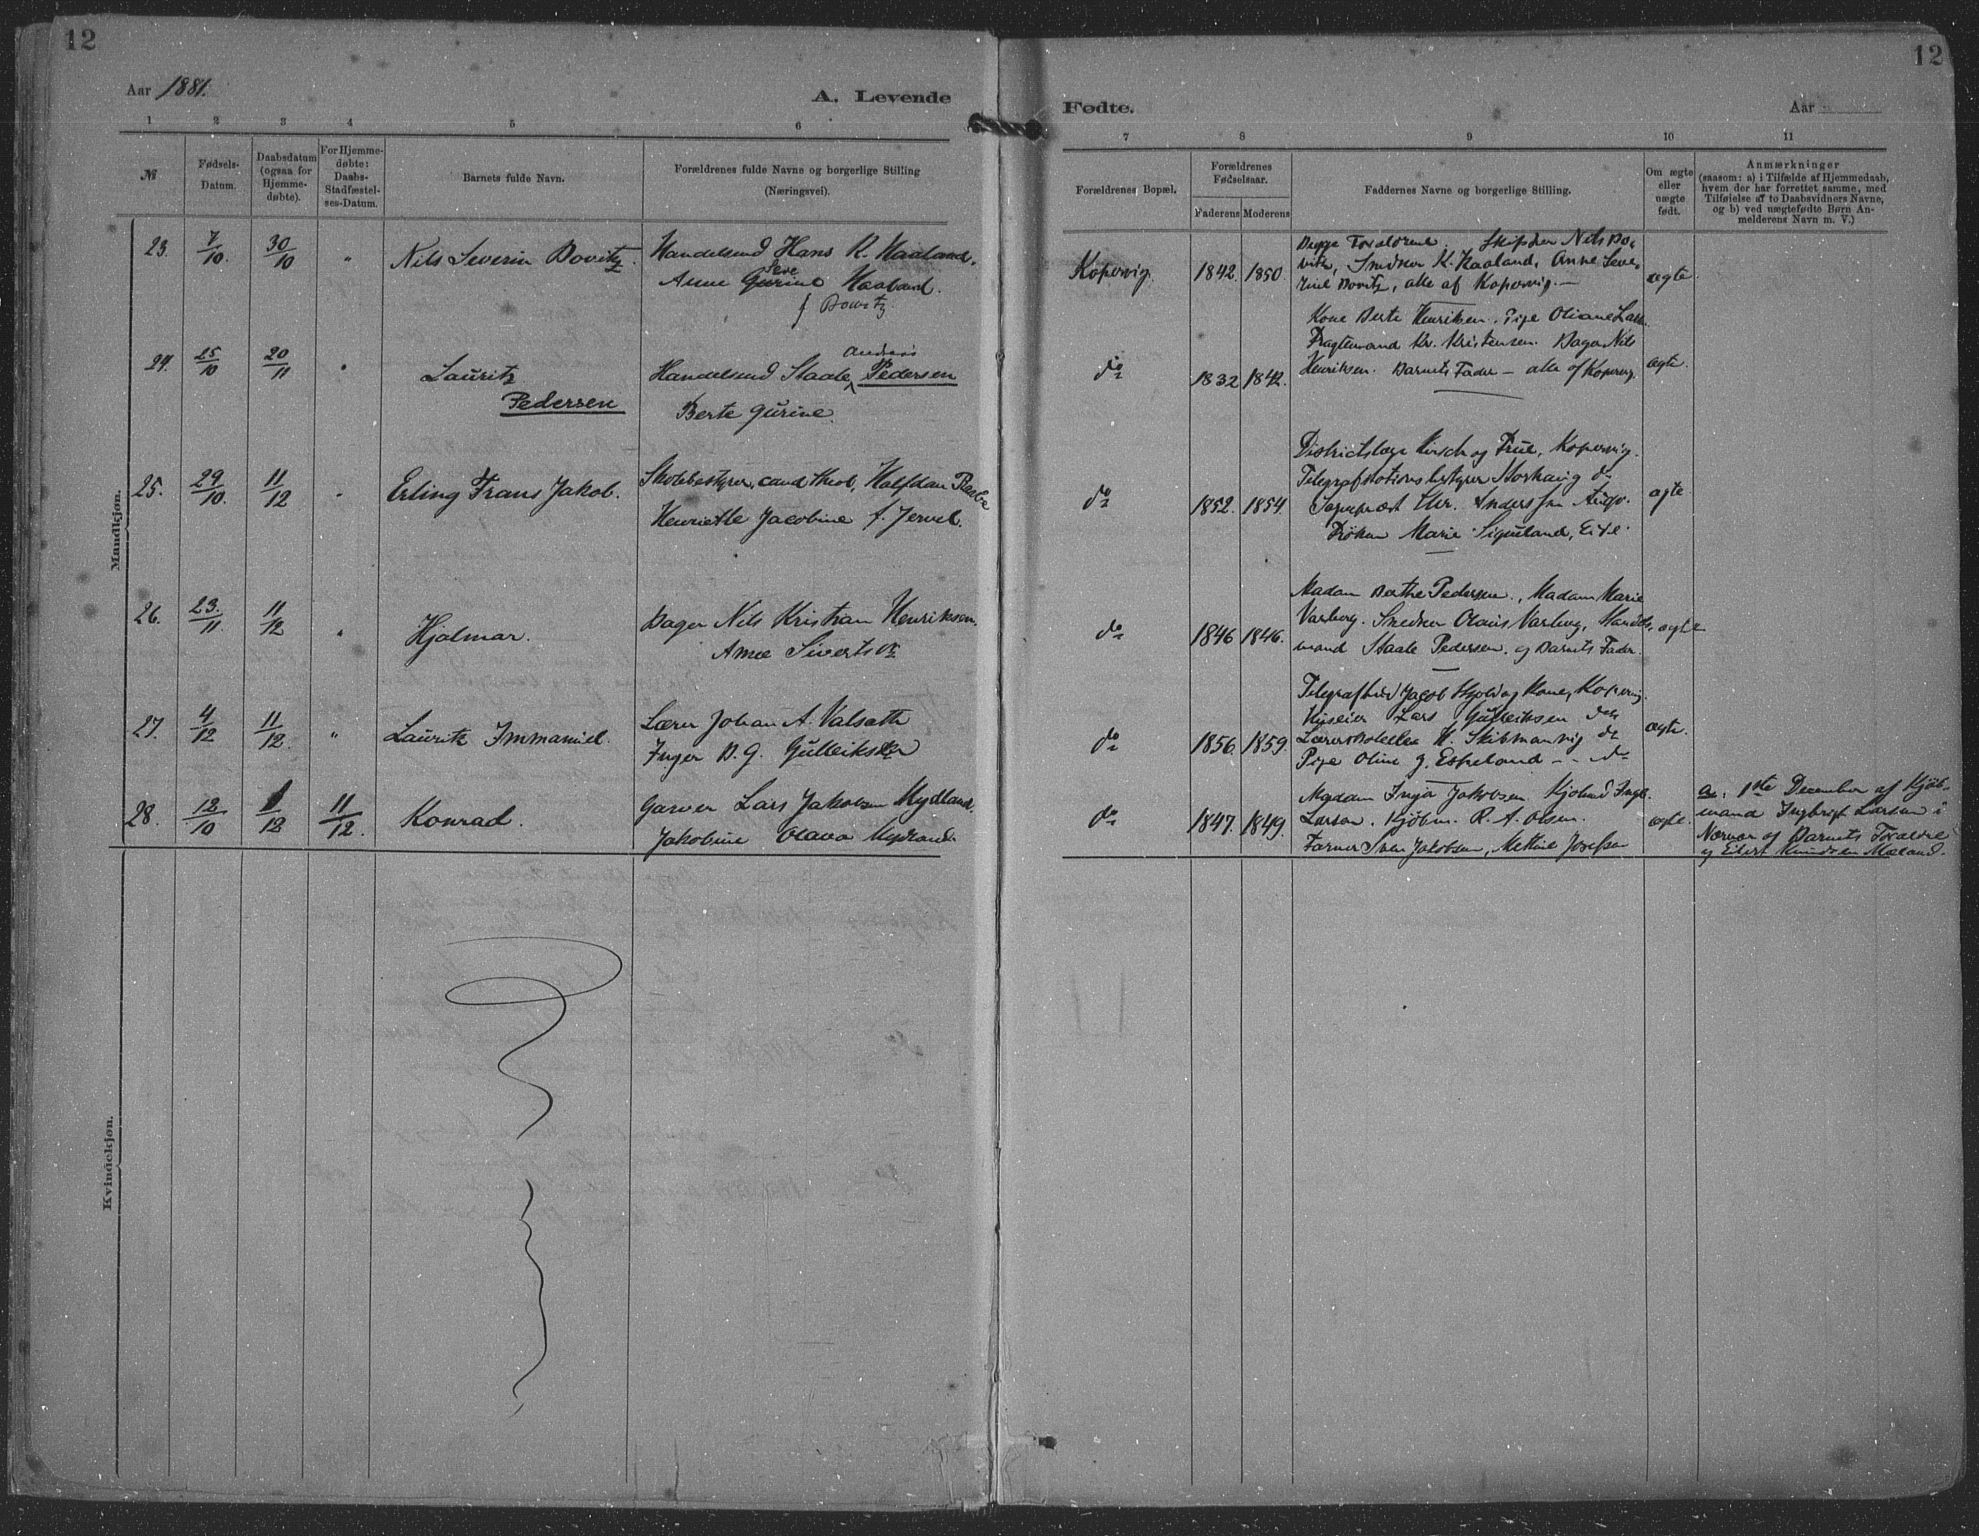 12
12
Aar 1881.
A. Levende
Fødte.
Aar
1 2 3 4 5 6 7 8 9 10 11
№
Fødsels-
Datum.
Daabsdatum
(ogsaa for
Hjemme-
døbte).
For Hjemme-
døbte:
Daabs-
Stadfæstel-
ses-Datum.
Barnets fulde Navn.
Forældrenes fulde Navne og borgerlige Stilling
(Næringsvei).
Forældrenes Bopæl.
Forældrenes
Fødselsaar.
Faderens Moderens
Faddernes Navne og borgerlige Stilling.
Om ægte
eller
uægte
født.
Anmærkninger
(saasom: a) i Tilfælde af Hjemmedaab,
hvem der har forrettet samme, med
Tilføielse af to Daabsvidners Navne,
og b) ved uægtefødte Børn An-
melderens Navn m. V.)
Mandkjøn.
23. 7/10 30/10 " Nils Severin Dovitz
Handelsmd Hans R. Haaland.
Anne Gurine Haaland.
f Dovitz
Kopervig. 1842. 1850
Begge Forældrene. Nils Do-
vitz, Snedker K. Haaland, Anne Seve-
rine Dovitz, alle af Kopervig.—
ægte
24. 25/10 20/11 " Lauritz
Pedersen
Andreas
Handelsmd Staale Pedersen
Berte Gurine
do 1832 1842.
Kone Berte Henriksen. Pige Oliane
Fragtemand Kr. Kristensen. Bager Nils
Henriksen. Barnets Fader — alle af Kopervig.
ægte.
25. 29/10. 11/12 " Erling Frans Jakob.
Skolebestyrer, cand theol, Halfdan
Henriette Jacobine f. Jervel.
do 1852. 1854.
Districtslæge Kirsch og Frue, Kopervig.
Telegrafstationsbestyrer do
Sogneprest Chr.
Frøken Marie Sigueland, Eide.
ægte
26. 23./11. 11/12 " Hjalmar.
Bager Nils Kristian Henriksen.
Anne Sivertsdr
do 1846 1846.
Madam Berthe Pedersen., Madam Marie
Varberg. Snedker Olaus Varberg, Handels-
mand Staale Pedersen. og Barnets Fader.
ægte
27. 4/12 11/12. " Lauritz Immanuel.
Lærer Johan A. Valsath
Inger B. G. Gulleiksdr
do 1856. 1859.
Jacob Skjold og Kone, Kopervig.
Huseier Lars Gulleiksen do
H. Skibmanvig do
Pige Oline G. Espeland -- do
ægte.
28. 12/10 1/12 11/12. Konrad.
Garver Lars Jakobsen Mydland.
Jakobine Olava Mydland
do 1847. 1849.
Madam Inger Jakobsen Kjøbmd Ingb.
Larsen. Kjøbm. R. A. Olsen.
Farver Sven Jakobsen, Mettine Josefsen
ægte.
a: 1ste December af Kjøb-
mand Ingbrigt Larsen i
Nærvær af Barnets Forældre
og Eilert Knudsen Mæland.
Kvindekjøn.